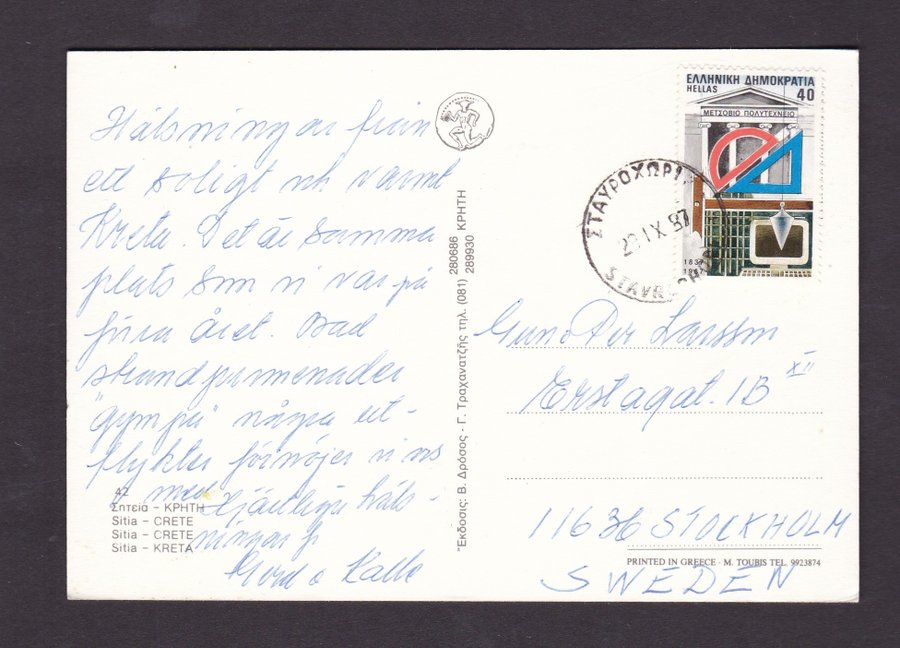 Hälsningar från
ett soligt och varmt
Kreta. Det är samma
plats som vi var på
förra året. Bad
strandpromenader
"gympa" några ut-
flykter förnöjer vi oss
med. Hjärtliga häls-
ningar fr
Gerd o Kalle
42
Σητεία - ΚΡΗΤΗ
Sitia - CRETE
Sitia - CRETE
Sitia - KRETA
Έκδοσις: Β. Δρόσος - Γ. Τραχανατζής τηλ. (081) 280686 289930 ΚΡΗΤΗ
ΕΛΛΗΝΙΚΗ ΔΗΜΟΚΡΑΤΙΑ
HELLAS 40
ΜΕΤΣΟΒΙΟ ΠΟΛΥΤΕΧΝΕΙΟ
1837
ΣΤΑΥΡΟΧΩΡΙ
IX 87
STAVR
Gun o Per Larsson
Erstagat. 1B XII
11636 STOCKHOLM
PRINTED IN GREECE · M. TOUBIS TEL. 9923874
SWEDEN